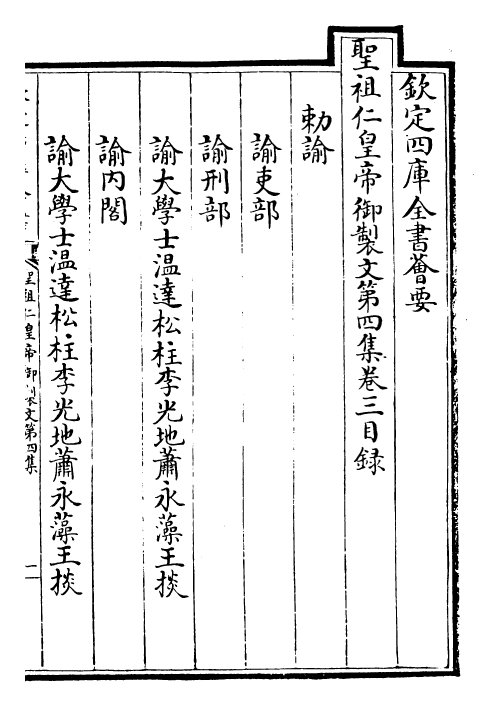 欽定四庫全書薈要
聖祖仁皇帝御製文第四集卷三目録
勅諭
諭吏部
諭刑部
諭大學士温達松柱李光地蕭永藻王掞
諭內閣
諭大學士温達松柱李光地蕭永藻王掞
聖祖仁皇帝御製文第四集